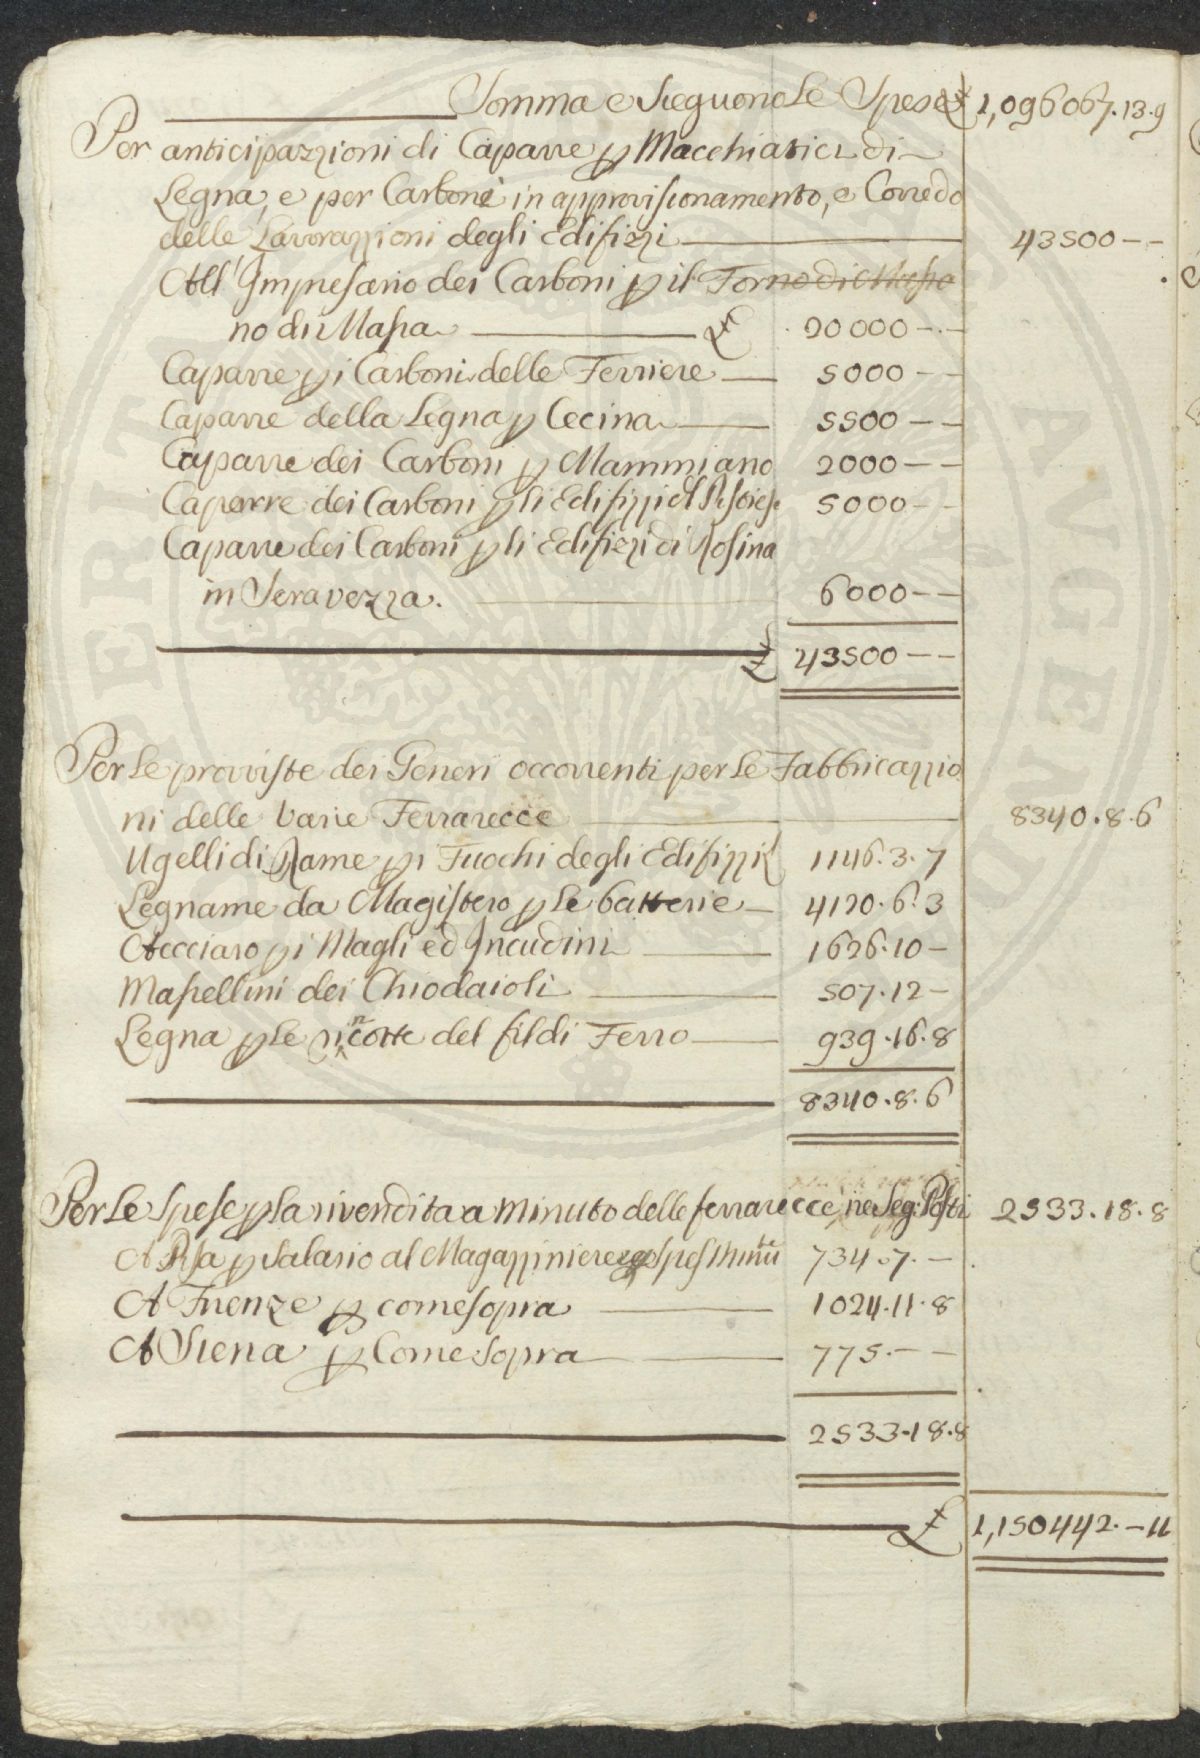 Somma e Sieguono Le Spese £ 1,096067.13.9
Per anticipazzioni di Caparre p Macchiatici di
Legna, e per Carbone in approvisionamento, e Corredo
delle Lavorazzioni degli Edifizzi 43500--
All'Impresario dei Carboni p il Forno di Massa
no di Massa £ 20000--
Caparre p i Carboni delle Ferriere 5000--
Caparre della Legna p Cecina 5500--
Caparre dei Carboni p Mammiano 2000--
Caparre dei Carboni p li Edifizzi del 5000--
Caparre dei Carboni p li Edifizzi di Rosina
in Seravezza. 6000--
£ 43500--
Per Le provviste dei Generi occorrenti per Le Fabbricazzio
ni delle Varie Ferrarecce 8340.8.6
Ugelli di Rame p i Fuochi degli Edifizzi 1146.3.7
Legname da Magistero p Le batterie 4120.6.3
Acciaro p i Magli ed Incudini 1626.10-
Massellini dei Chiodaioli 507.12-
Legna p Le ricotte del fil di Ferro 939.16.8
8340.8.6
Per Le Spese p La rivendita a Minuto delle ferrarecce ne Seg: Posti 2533.18.8
A Pisa p Salario al Magazziniere e Spese Minu 734.7.-
A Firenze p come sopra 1024.11.8
A Siena p Come Sopra 775.--
2533.18.8
£ 1,150442.-11